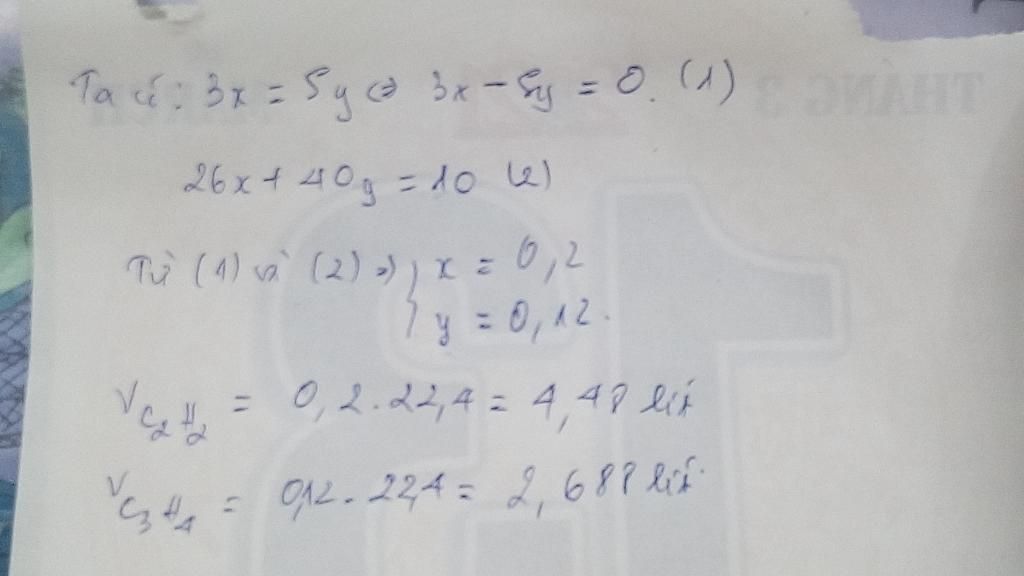 Ta có: 3x = 5y <=> 3x - 5y = 0. (1)
26x + 40y = 10 (2)
Từ (1) và (2) => { x = 0,2
y = 0,12.
V C2H2 = 0,2.22,4 = 4,48 lít
V C3H4 = 0,12.22,4 = 2,688 lít.
THÁNG 3
MARCH
13